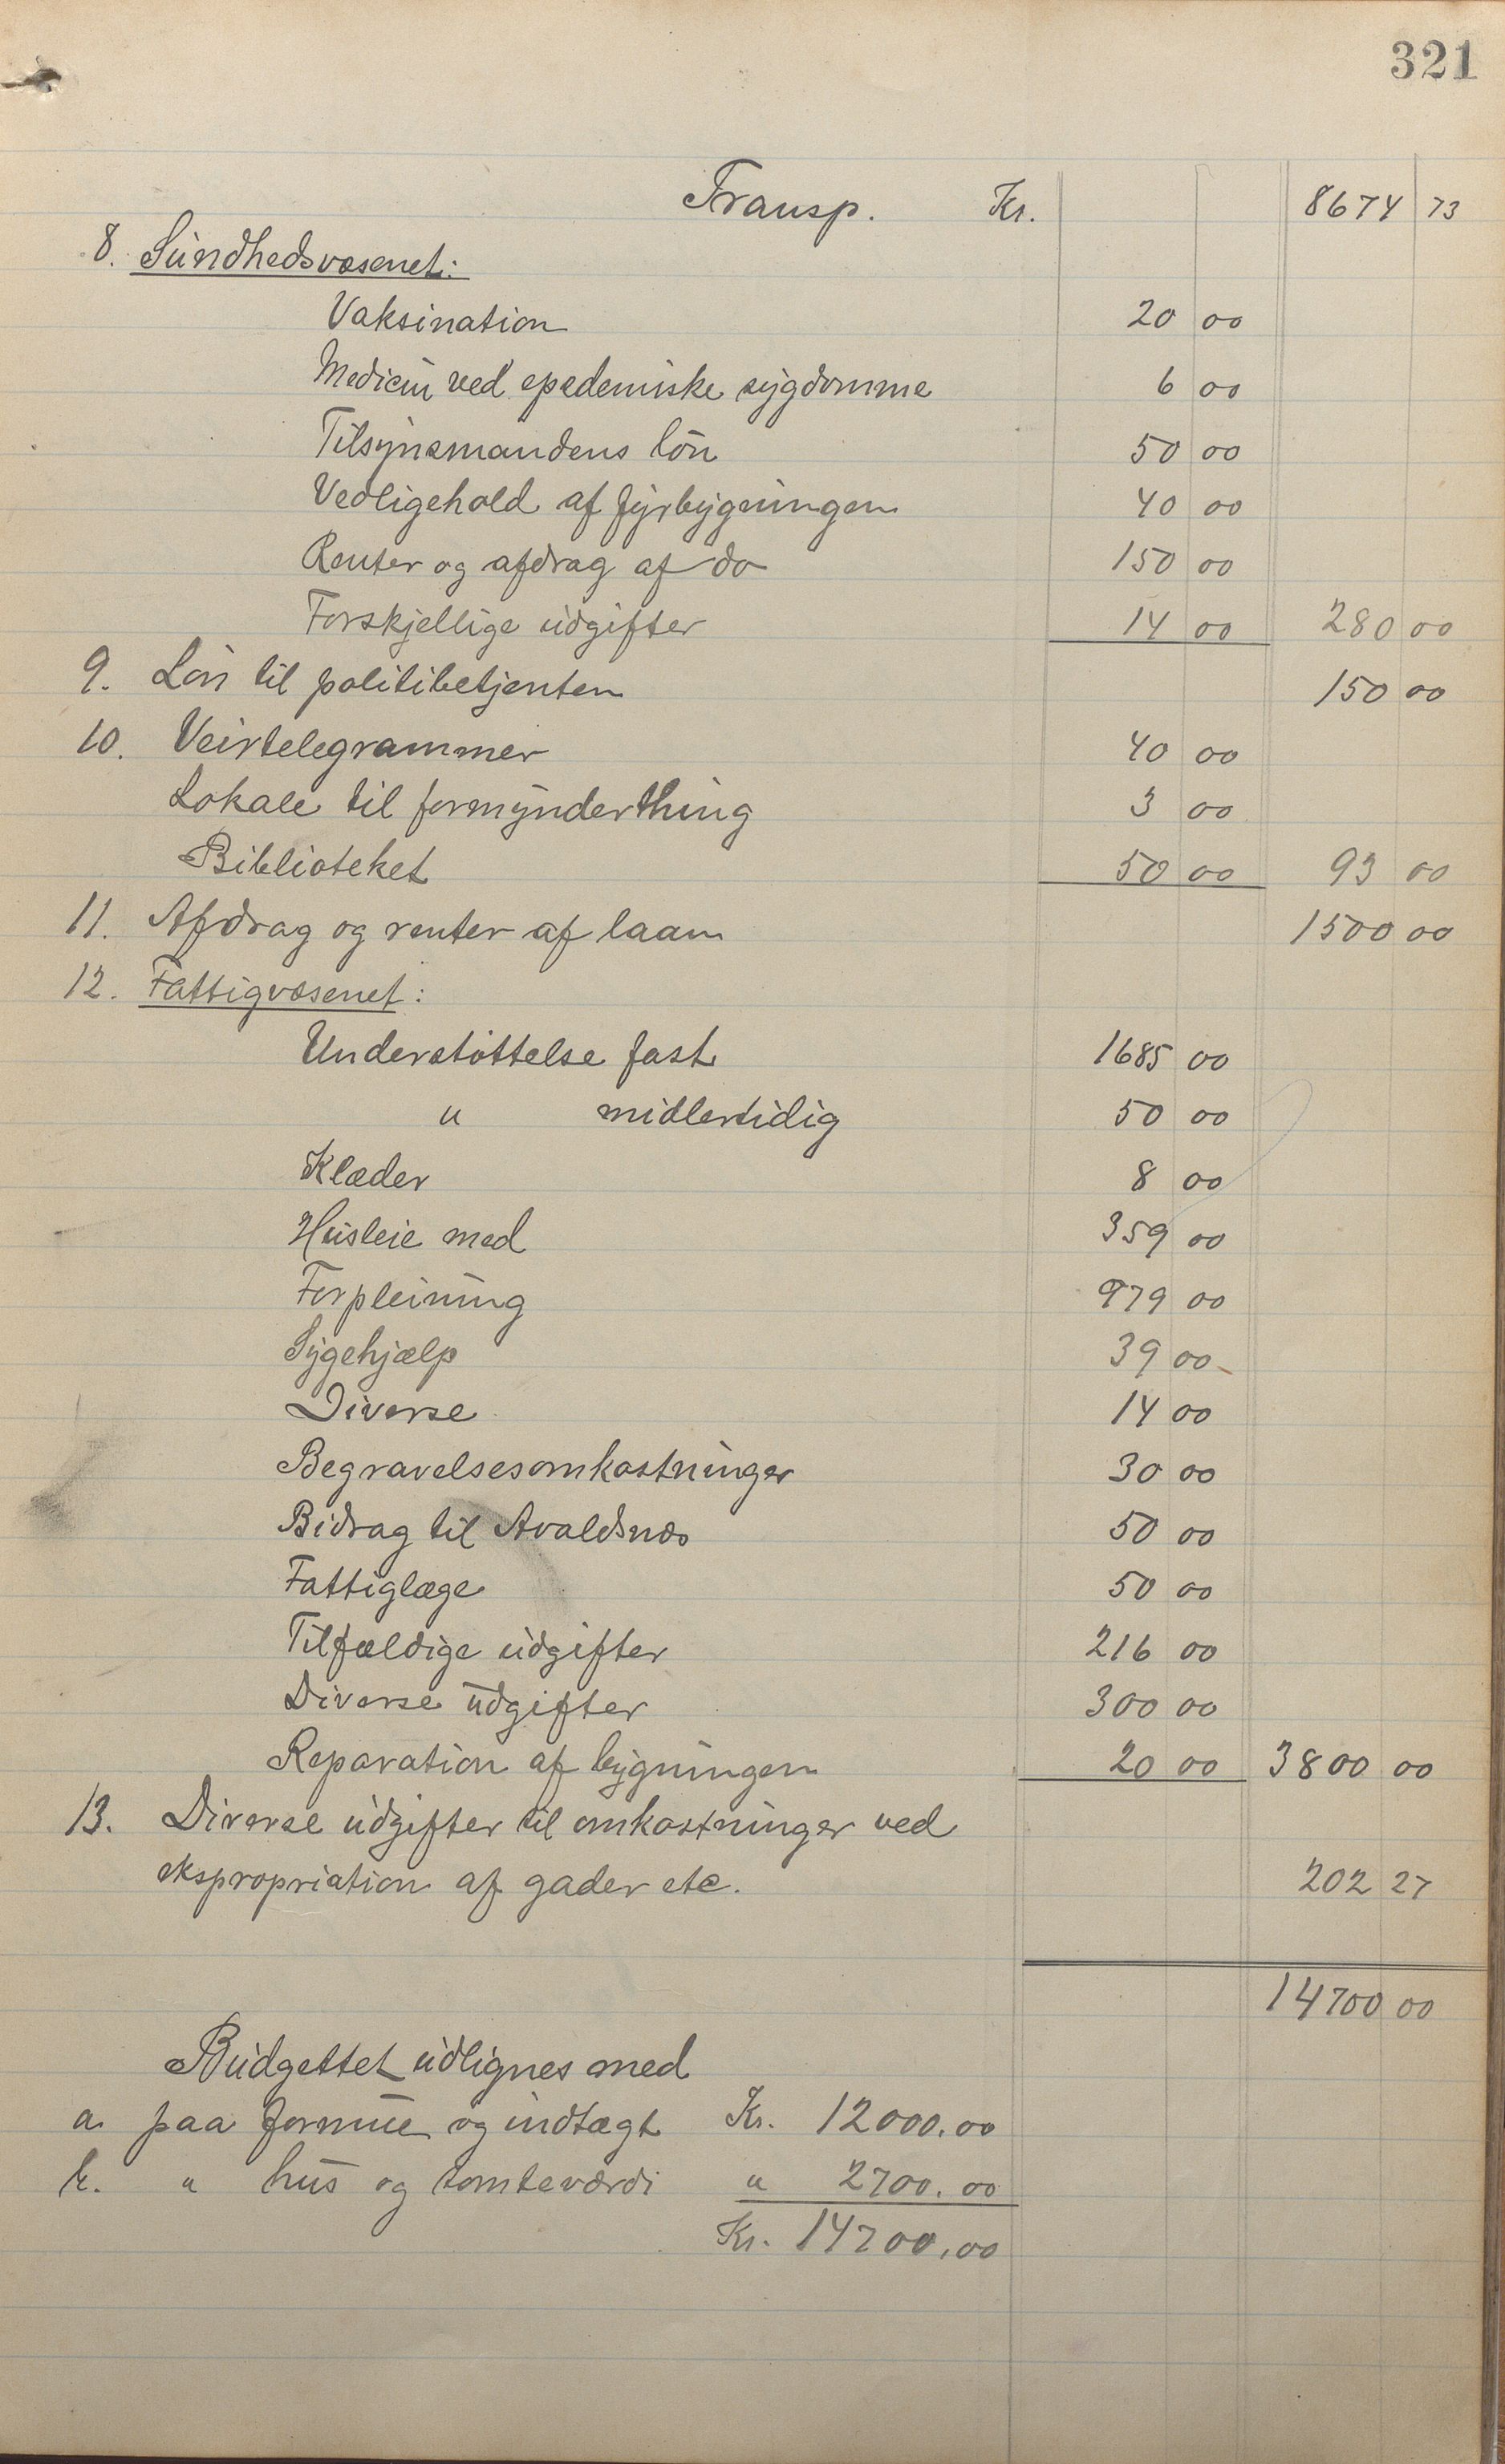 321
Transp. Kr. 8674 73
8. Sundhedsvæsenet:
Vaksination 20 00
Medicin ved epedemiske sygdomme 6 00
Tilsynsmandens lön 50 00
Vedligehold af fyrbygningen 40 00
Renter og afdrag af do 150 00
Forskjellige udgifter 14 00 280 00
9. Lön til politibetjenten 150 00
10. Veirtelegrammer 40 00
Lokale til formynderthing 3 00
Biblioteket 50 00 93 00
11. Afdrag og renter af laan 1500 00
12. Fattigvæsenet:
Understöttelse fast 1685 00
" midlertidig 50 00
Klæder 8 00
Husleie med 359 00
Forpleining 979 00
Sygehjælp 39 00
Diverse 14 00
Begravelsesomkostninger 30 00
Bidrag til Avaldsnæs 50 00
Fattiglæge 50 00
Tilfældige udgifter 216 00
Diverse udgifter 300 00
Reparation af bygningen 20 00 3800 00
13. Diverse udgifter til omkostninger ved
ekspropriation af gader etc. 202 27
14700 00
Budgettet udlignes med
a. paa formue og indtægt Kr. 12000.00
b. " hus og tomteværdi " 2700.00
Kr. 14700,00